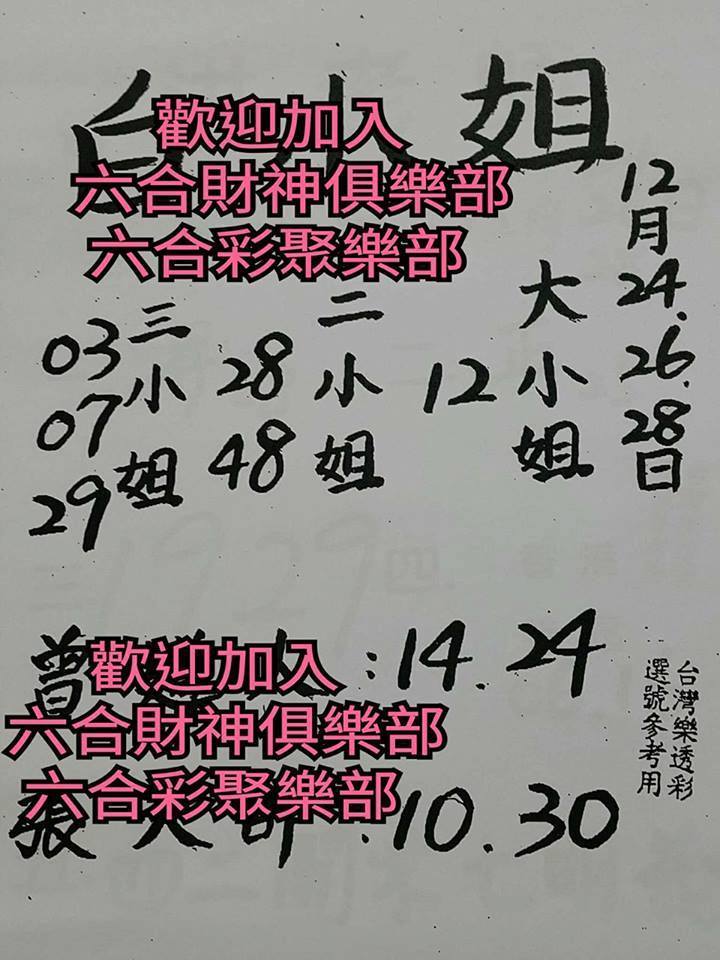 白小姐
歡迎加入
六合財神俱樂部
六合彩聚樂部
12月24.26.28日
大小姐
12
二小姐
28
48
三小姐
03
07
29
曾
:14.24
歡迎加入
六合財神俱樂部
六合彩聚樂部
張天師:10.30
台灣樂透彩
選號參考用